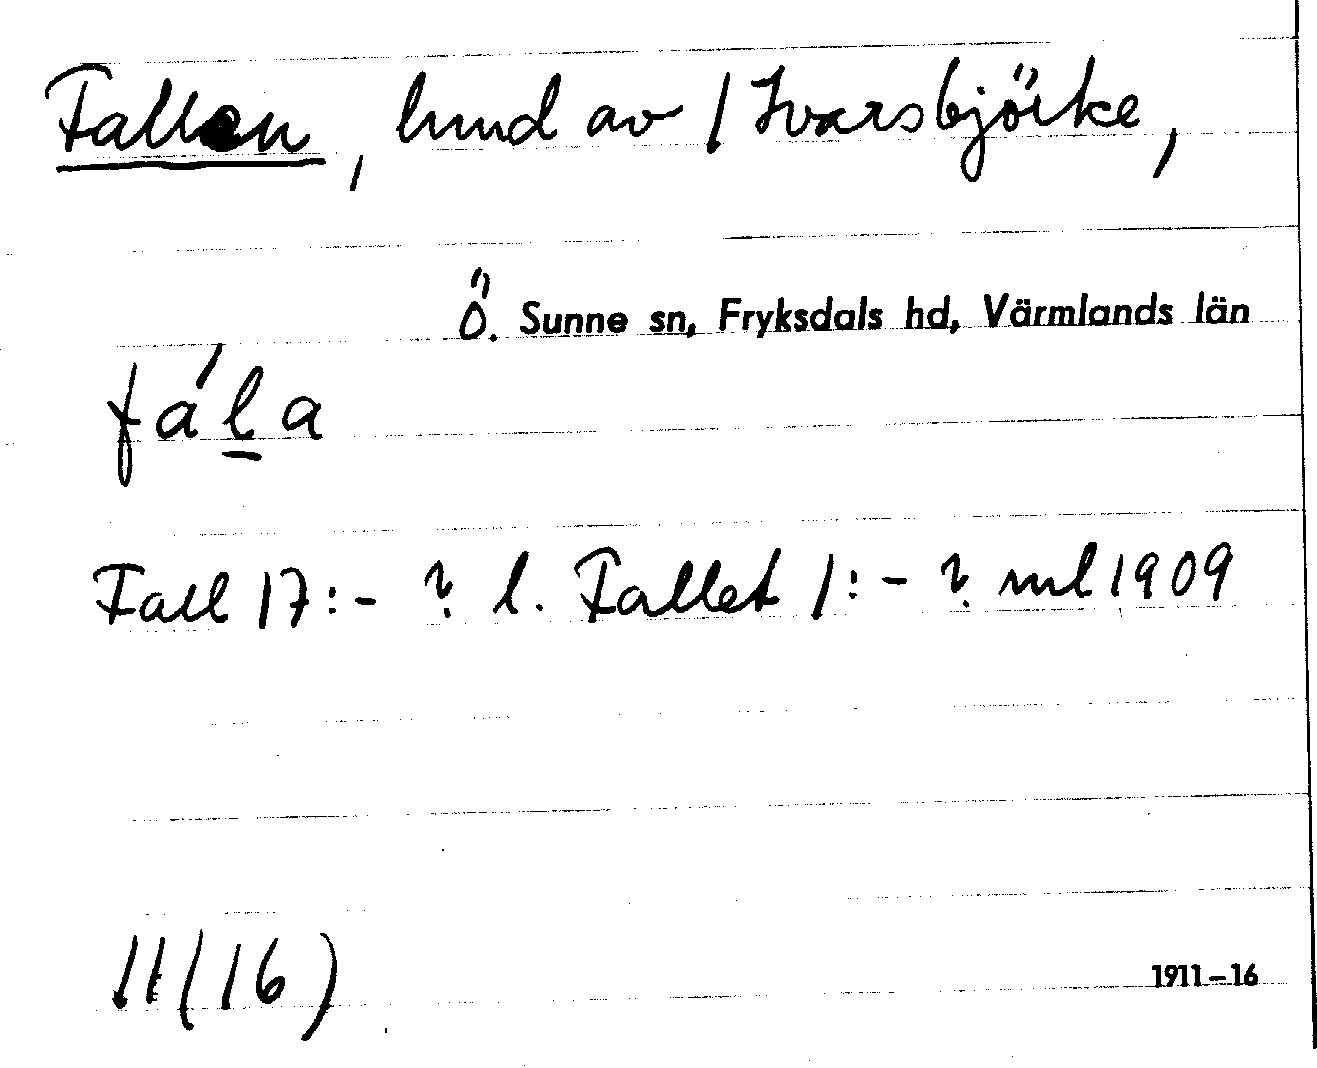 Fallen, lund av / Ivarsbjörke,
Ö. Sunne sn, Fryksdals hd, Värmlands län
fáḻa
Fall 17:- ? l. Fallet 1:- ? ml 1909
11(16)
1911–16